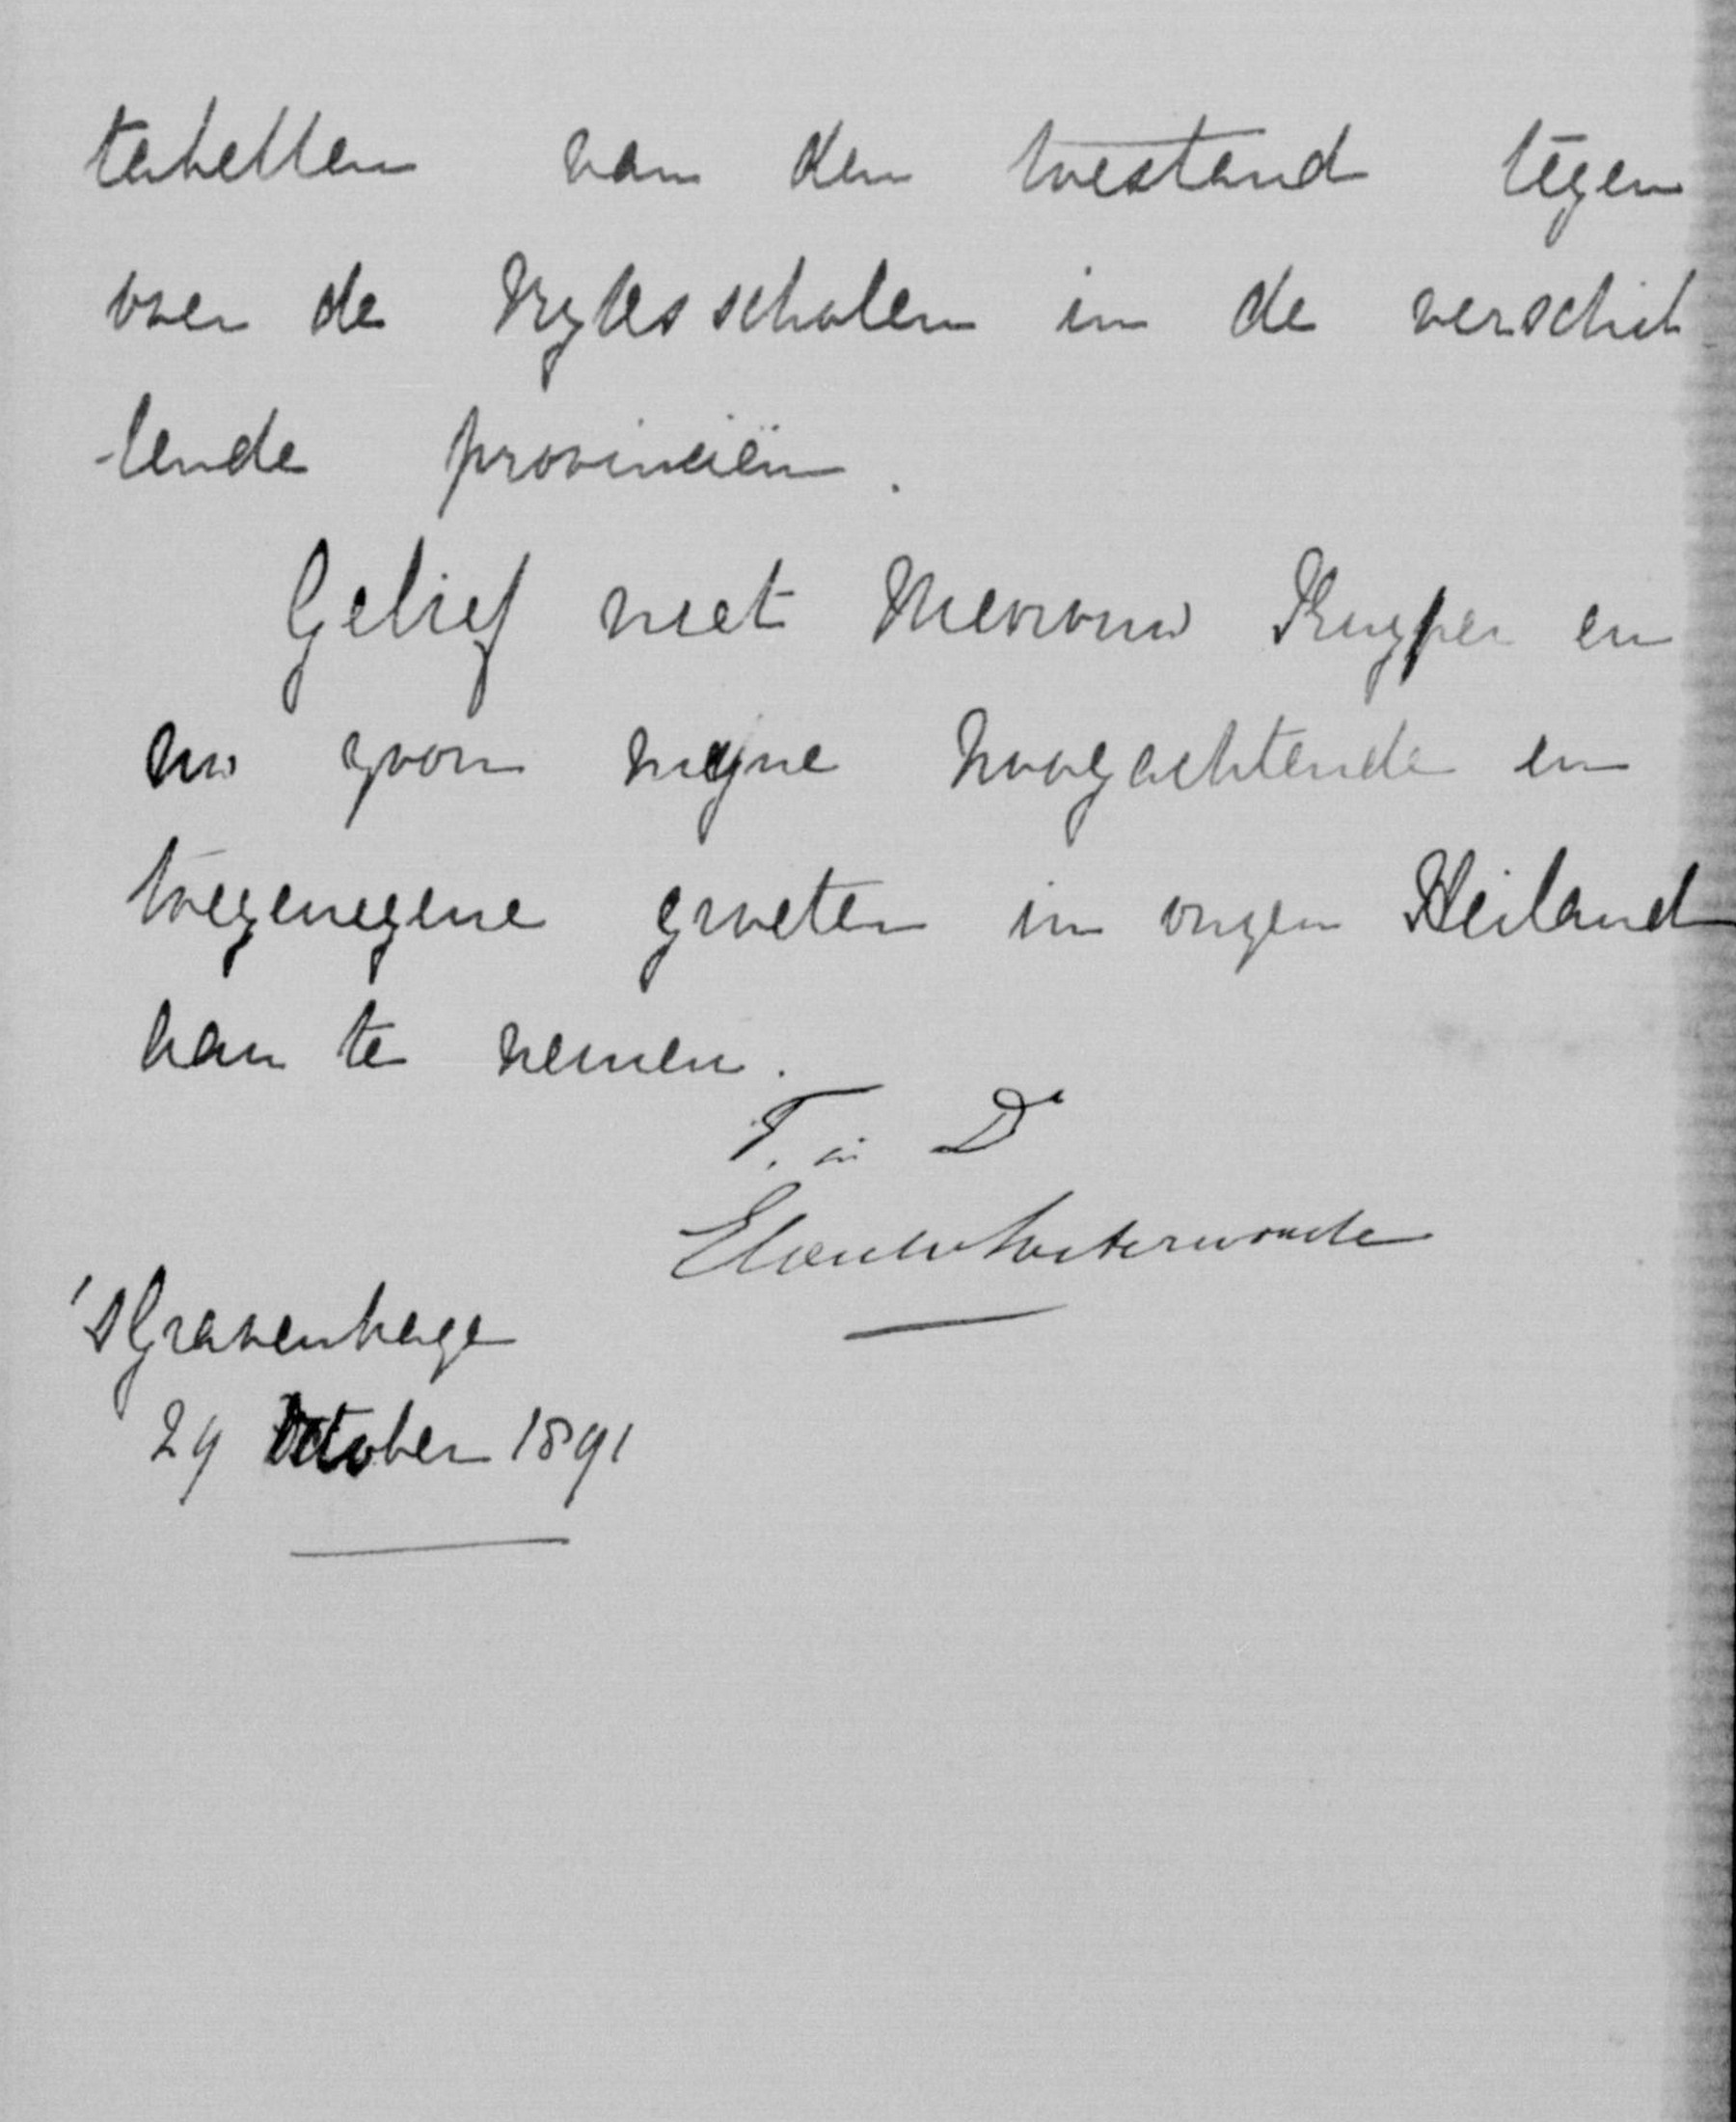 tabellen van den toestand tegen
over de Ryksscholen in de verschil
-lende provinciën.
Gelief met Mevrouw Kuyper en
uw zoon mijne hoogachtende en
toegenegene groeten in onzen Heiland
aan te nemen.
T. in D
Elout v Soeterwoude
'sGravenhage
29 October 1891